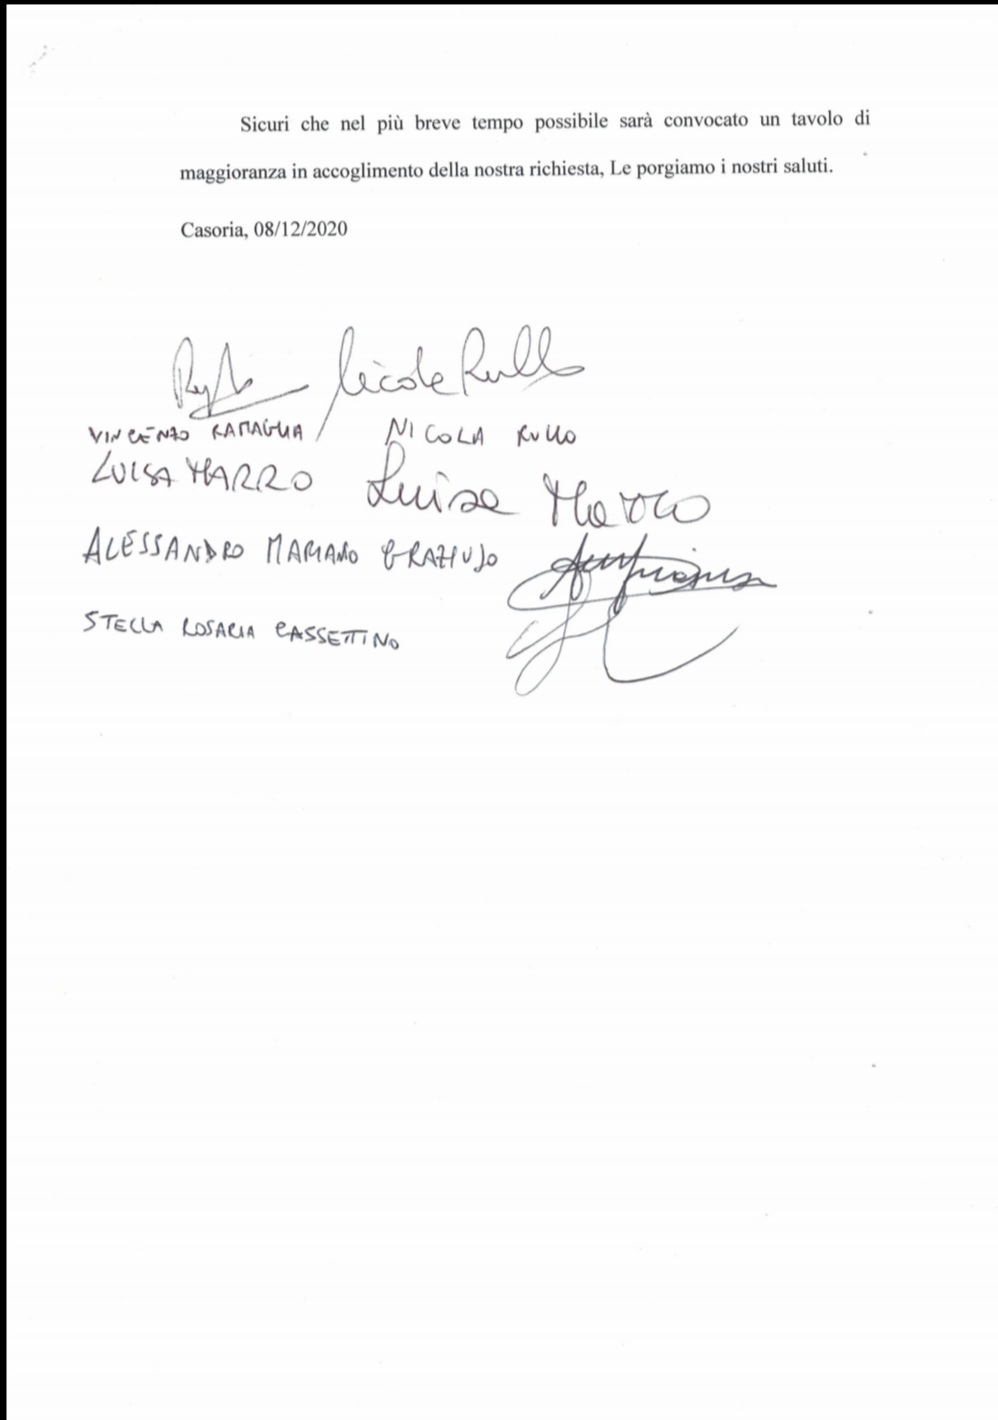 Sicuri che nel più breve tempo possibile sarà convocato un tavolo di
maggioranza in accoglimento della nostra richiesta, Le porgiamo i nostri saluti.
Casoria, 08/12/2020
Nicola Rullo
VINCENZO RAMAGLIA NICOLA RULLO
LUISA MARRO Luisa Marro
ALESSANDRO MARIANO
STELLA ROSARIA CASSETTINO